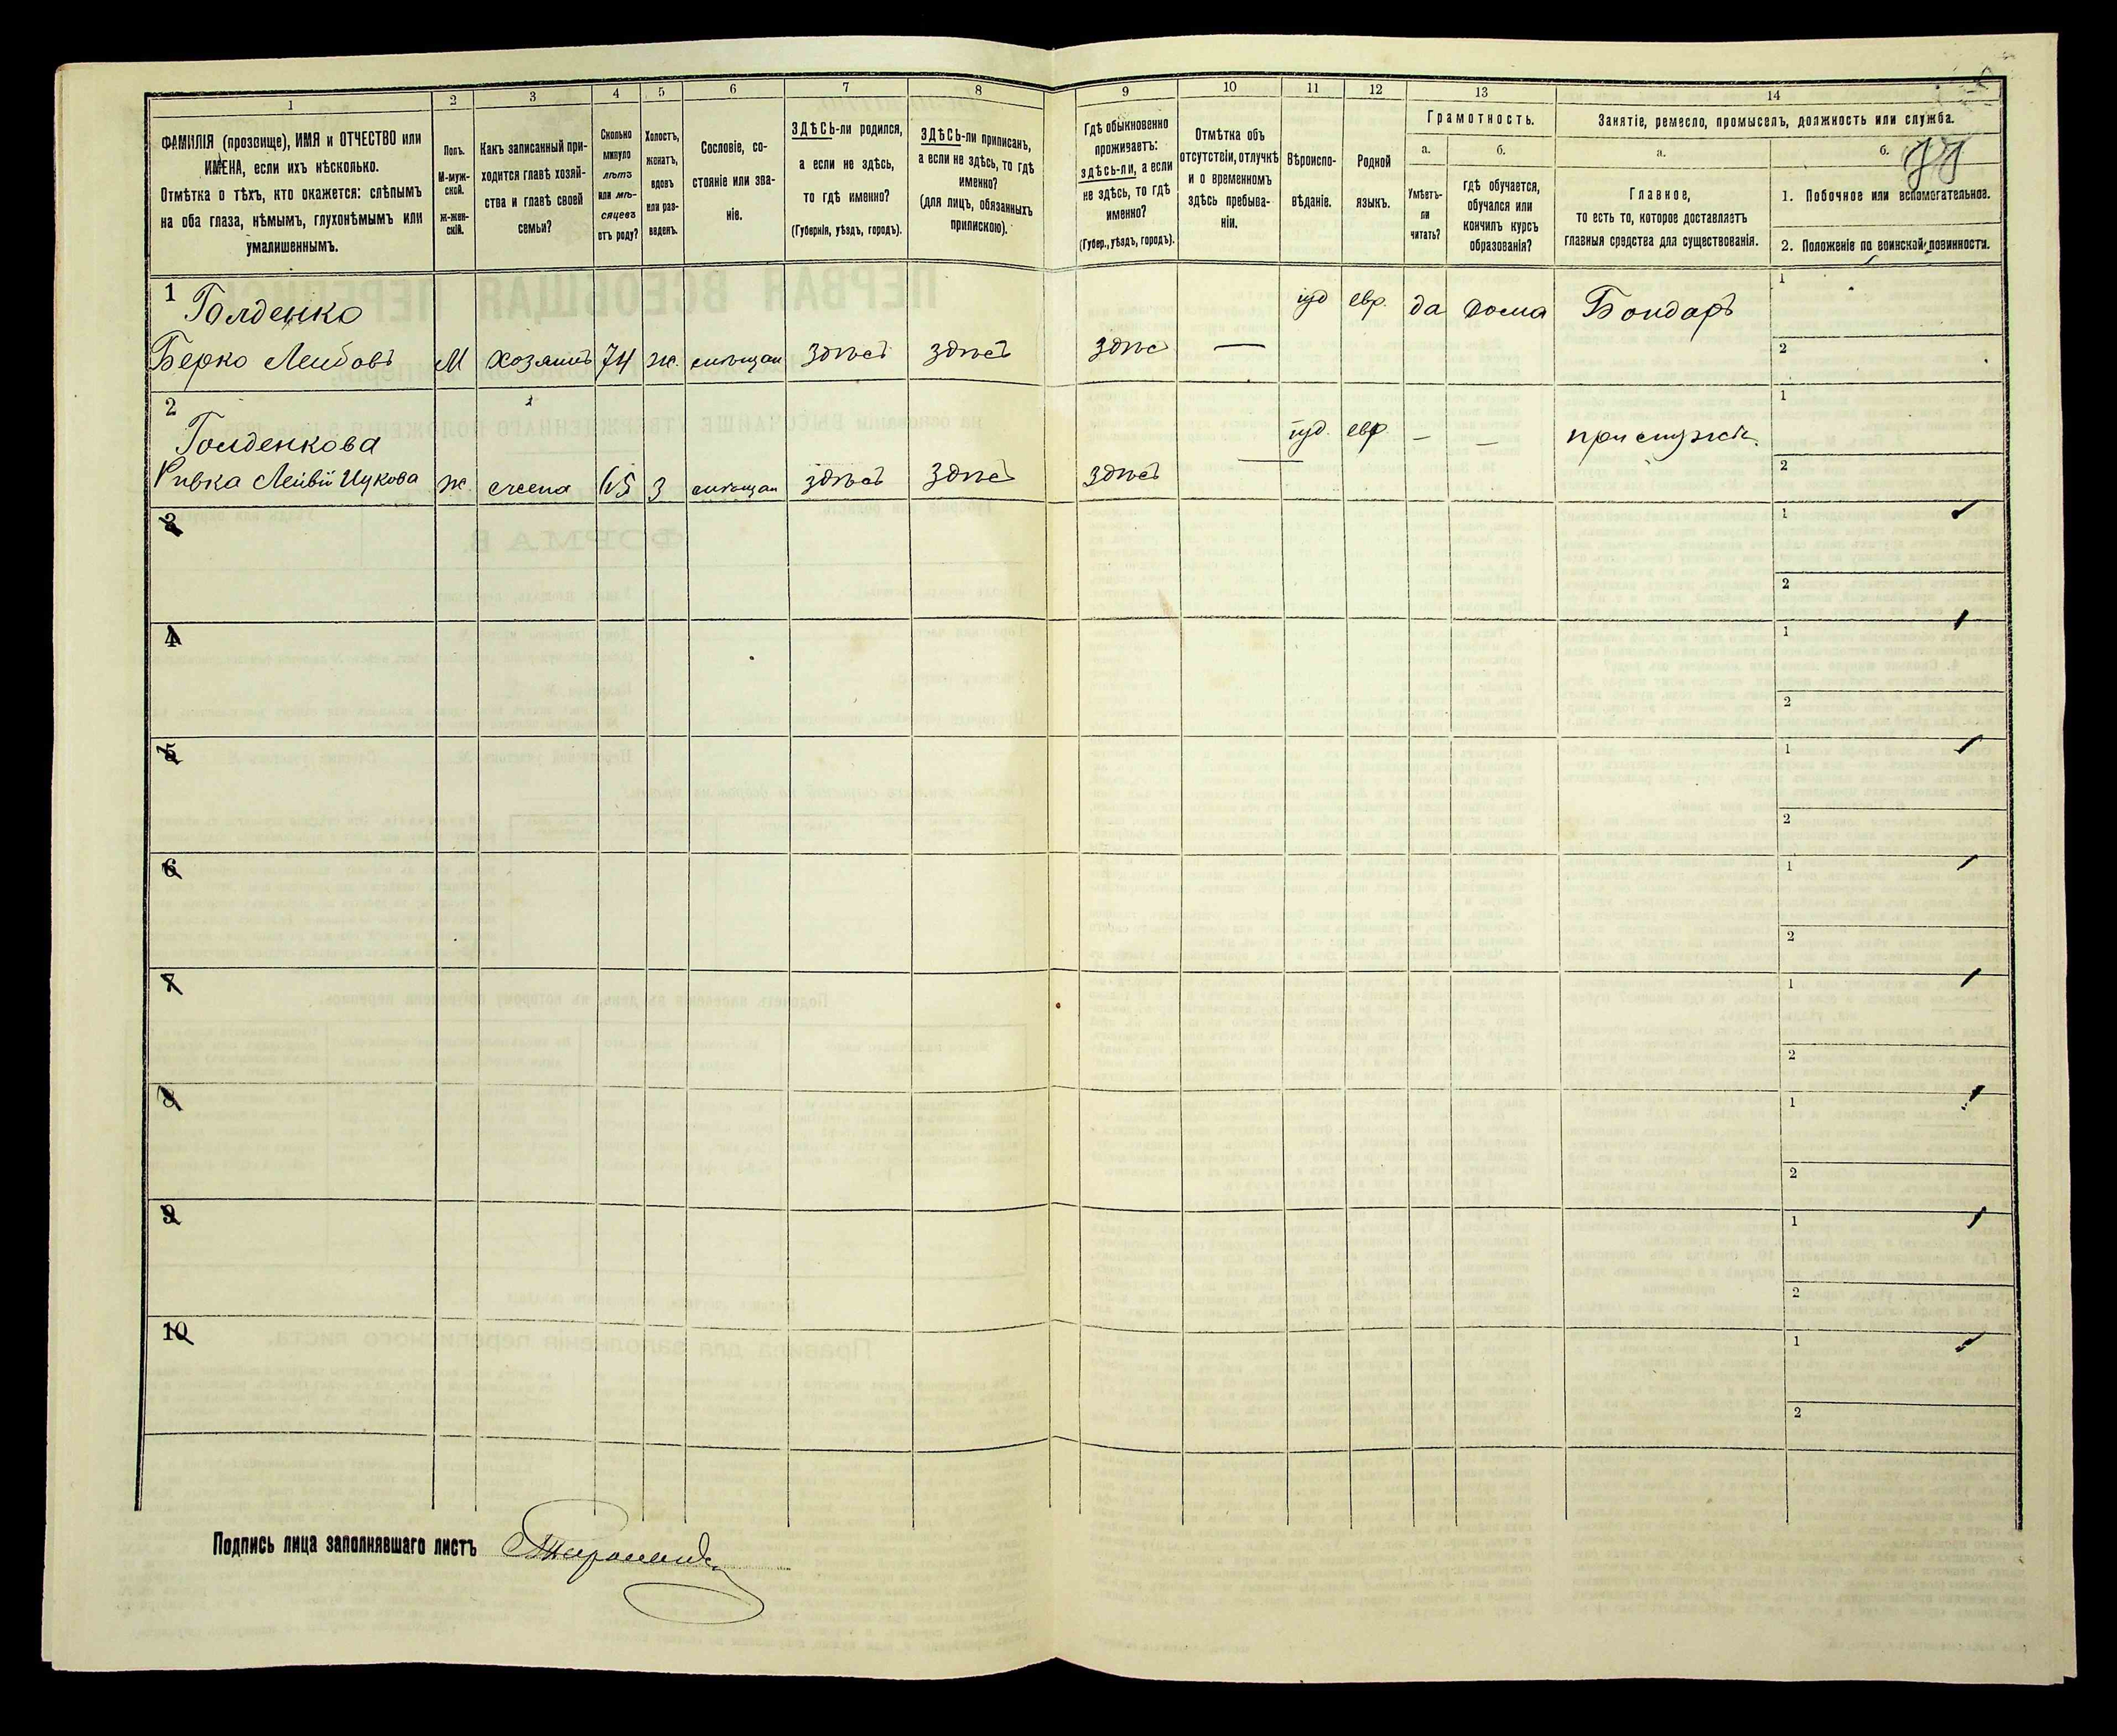 1 2 3 4 5 6 7 8 9 10 11 12 13 14
ФАМИЛІЯ (прозвище), ИМЯ и ОТЧЕСТВО или
ИМЕНА, если ихъ нѣсколько.
Отмѣтка о тѣхъ, кто окажется: слѣпымъ
на оба глаза, нѣмымъ, глухонѣмымъ или
умалишеннымъ.
Полъ.
М-муж-
ской.
Ж-жен-
скій.
Какъ записанный при-
ходится главѣ хозяй-
ства и главѣ своей
семьи?
Сколько
минуло
лѣтъ
или мѣ-
сяцевъ
отъ роду?
Холостъ,
женатъ,
вдовъ
или раз-
веденъ.
Сословіе, со-
стояніе или зва-
ніе.
ЗДѢСЬ-ли родился,
а если не здѣсь,
то гдѣ именно?
(Губернія, уѣздъ, городъ).
ЗДѢСЬ-ли приписан,
а если не здѣсь, то гдѣ
именно?
(для лицъ, обязанныхъ
припискою).
Гдѣ обыкновенно
проживаетъ:
здѣсь-ли, а если
не здѣсь, то гдѣ
именно?
(Губер., уѣздъ, городъ).
Отмѣтка объ
отсутствіи, отлучкѣ
и о временномъ
здѣсь пребыва-
ніи.
Вѣроиспо-
вѣданіе.
Родной
языкъ.
Грамотность.
а.
Умѣетъ-
ли
читать?
б.
Гдѣ обучается,
обучался или
кончилъ курсъ
образованія?
Занятіе, ремесло, промыселъ, должность или служба.
а.
Главное,
то есть то, которое доставляетъ
главныя средства для существованія.
б.
1. Побочное или вспомогательное.
2. Положеніе по воинской повинности.
1 Голденко
Берко Лейбовъ М хозяинъ 74 ж. мѣщан здѣсь здѣсь здѣс — іуд евр. да дома Бондарь
1
2
2 Голденкова
Ривка Лейбы Ицкова ж. жена 65 з мѣщан здѣсь здѣсь здѣсь — іуд. евр — — при мужѣ.
1
2
3
1
2
4
1
2
5
1
2
6
1
2
7
1
2
8
1
2
9
1
2
10
1
2
Подпись лица заполнявшаго листъ